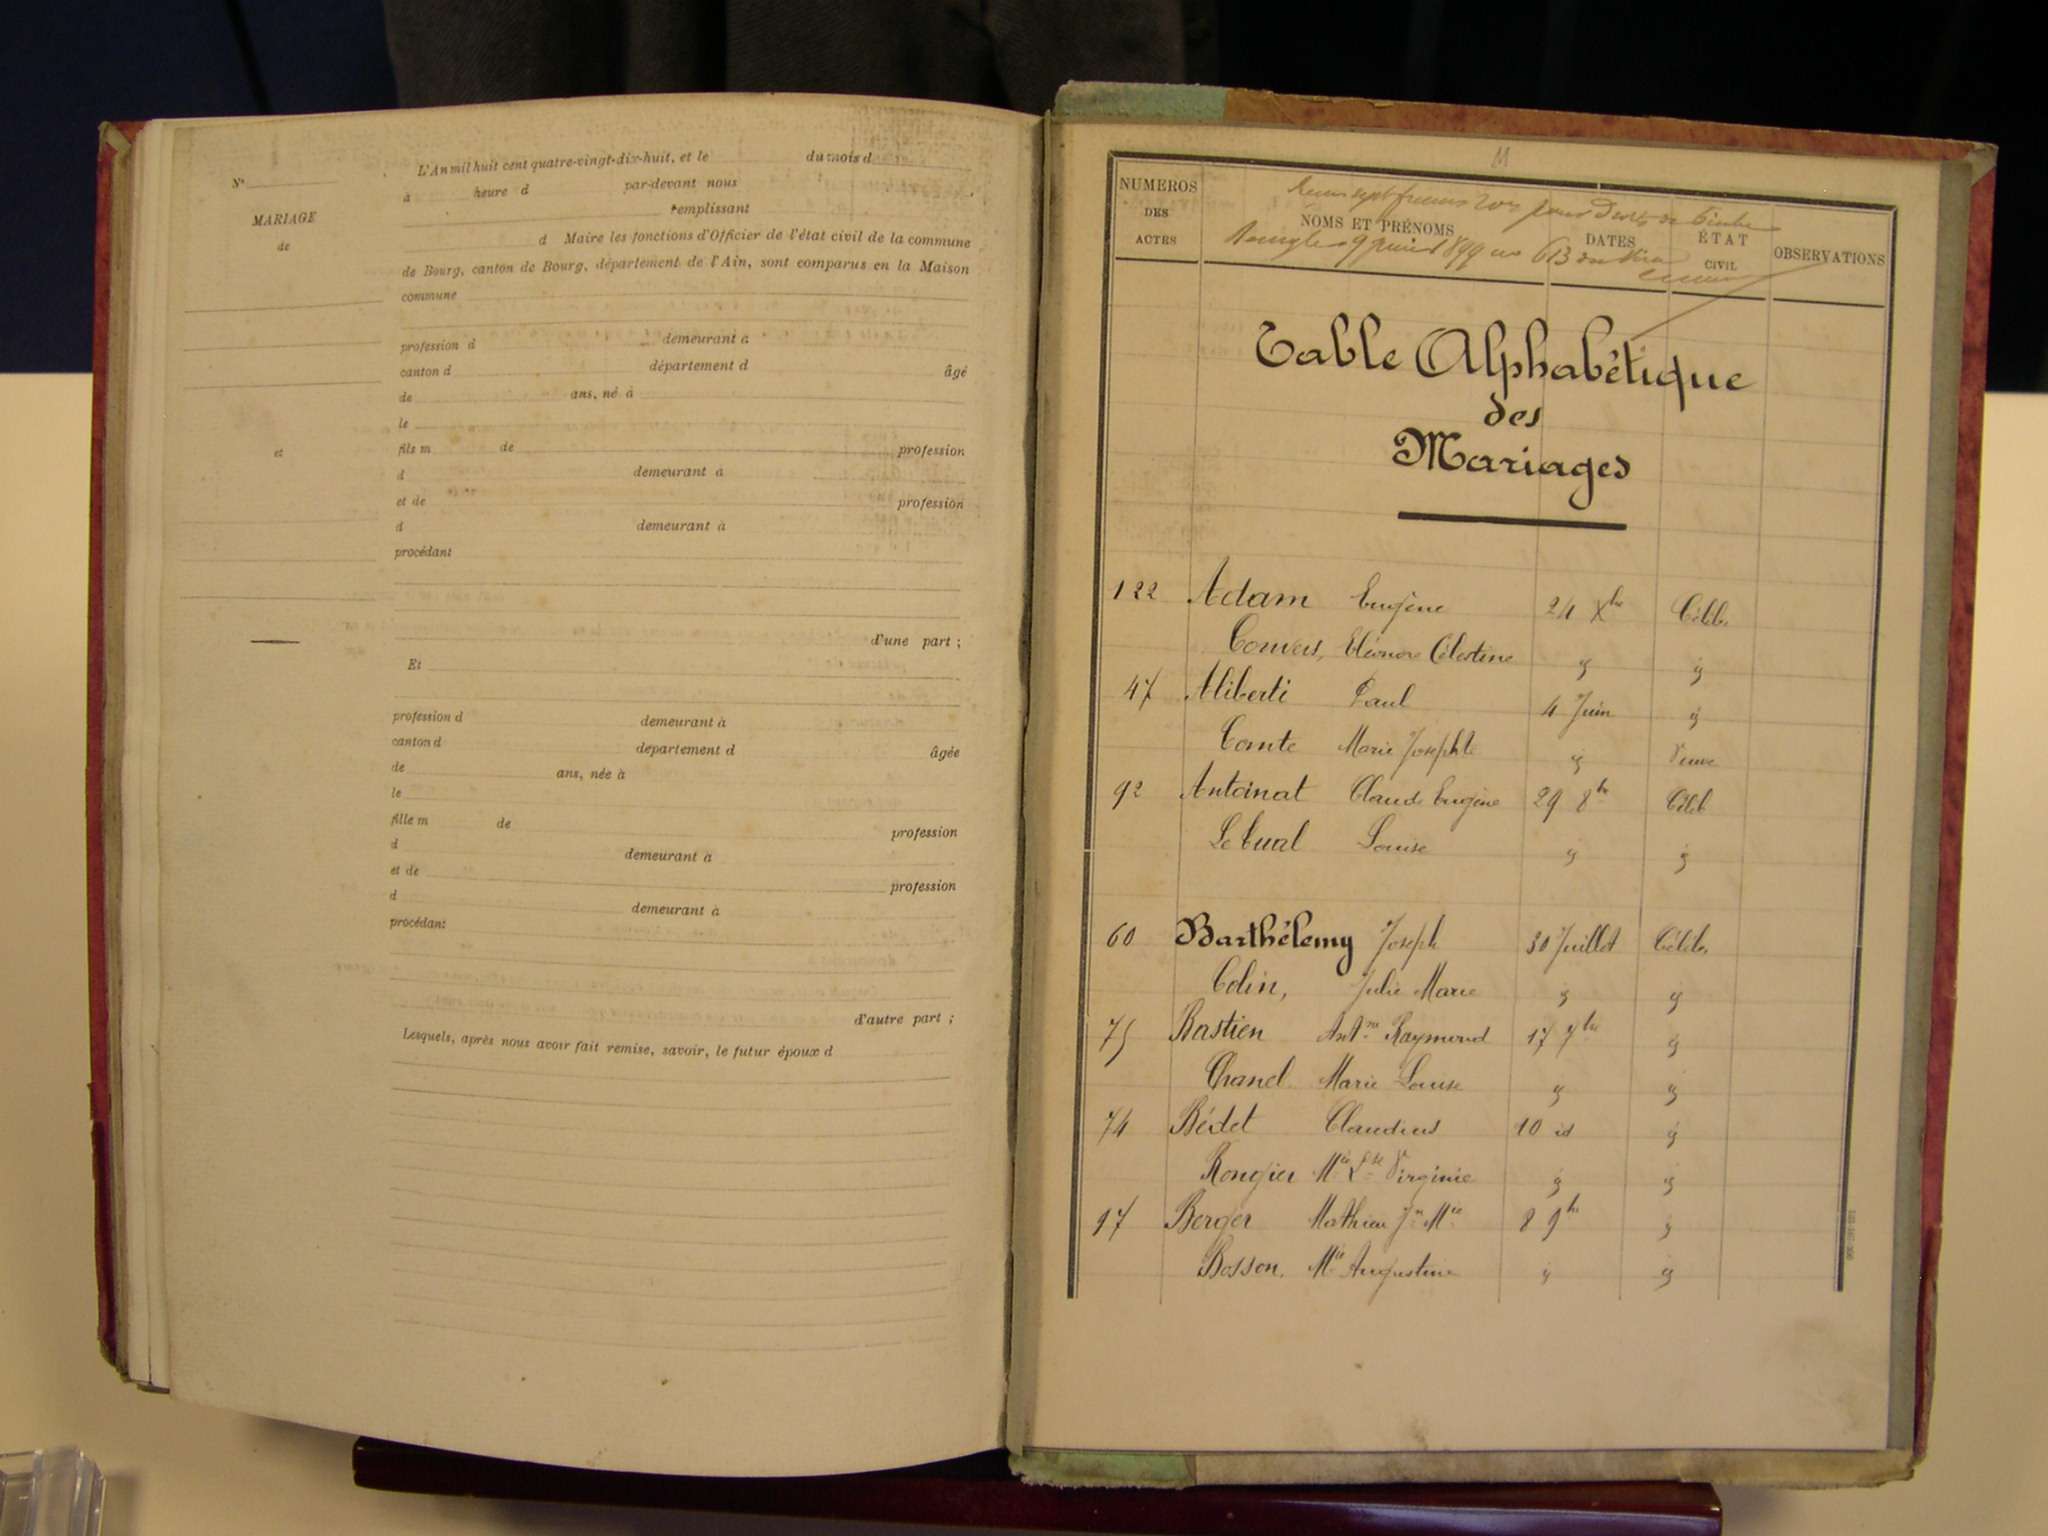 N°
MARIAGE
de
et
L'An mil huit cent quatre-vingt-dix-huit, et le du mois d
à heure d par-devant nous
remplissant
d Maire les fonctions d'Officier de l'état civil de la commune
de Bourg, canton de Bourg, département de l'Ain, sont comparus en la Maison
commune
profession d demeurant à
canton d département d âgé
de ans, né à
le
fils m de profession
d demeurant à
et de profession
d demeurant à
procédant
d'une part ;
Et
profession d demeurant à
canton d département d âgée
de ans, née à
le
fille m de profession
d demeurant à
et de profession
d demeurant à
procédant
d'autre part ;
Lesquels, après nous avoir fait remise, savoir, le futur époux d
NUMEROS DES ACTES
NOMS ET PRÉNOMS
DATES
ÉTAT CIVIL
OBSERVATIONS
Table Alphabétique
des
Mariages
122 Adam Eugène 24 Xbre Célib.
Convers, Eléonore Célestine id id
47 Aliberti Paul 4 Juin id
Comte Marie Josephte id Veuve
92 Antoinat Claude Eugène 29 8bre Célib
Le Cual Louise id id
60 Barthélemy Joseph 30 Juillet Célib.
Colin, Julie Marie id id
75 Bastien Antne Raymond 17 7bre id
Chanel Marie Louise id id
74 Bédet Claudius 10 id id
Rongier Mie Lse Virginie id id
97 Berger Mathieu Jn Mie 8 9bre id
Bosson, Mie Augustine id id